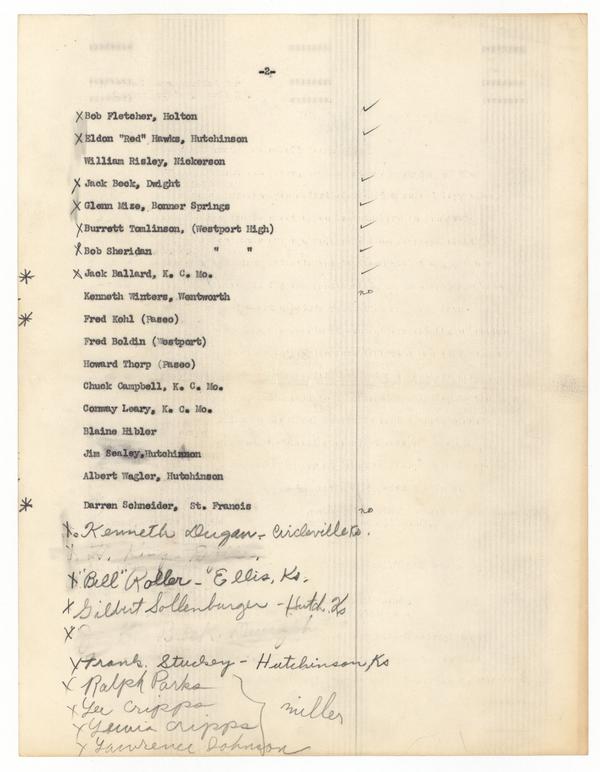 -2-
X Bob Fletcher, Holton ✓
X Eldon "Red" Hawks, Hutchinson ✓
William Risley, Nickerson
X Jack Beck, Dwight ✓
X Glenn Mize, Bonner Springs ✓
X Burrett Tomlinson, (Westport High) ✓
X Bob Sheridan " " ✓
* X Jack Ballard, K. C. Mo. ✓
Kenneth Winters, Wentworth no
* Fred Kohl (Paseo)
Fred Boldin (Westport)
Howard Thorp (Paseo)
Chuck Campbell, K. C. Mo.
Conway Leary, K. C. Mo.
Blaine Hibler
Jim Sealey, Hutchinson
Albert Wagler, Hutchinson
* Darren Schneider, St. Francis no
X. Kenneth Dugan - Circleville Ks.
X "Bill" Roller - Ellis, Ks.
X Gilbert Sollenburger - Hutch. Ks
X
X Frank Stuckey - Hutchinson, Ks
X Ralph Parks
X Lee Cripps miller
X Lewis Cripps
X Lawrence Johnson